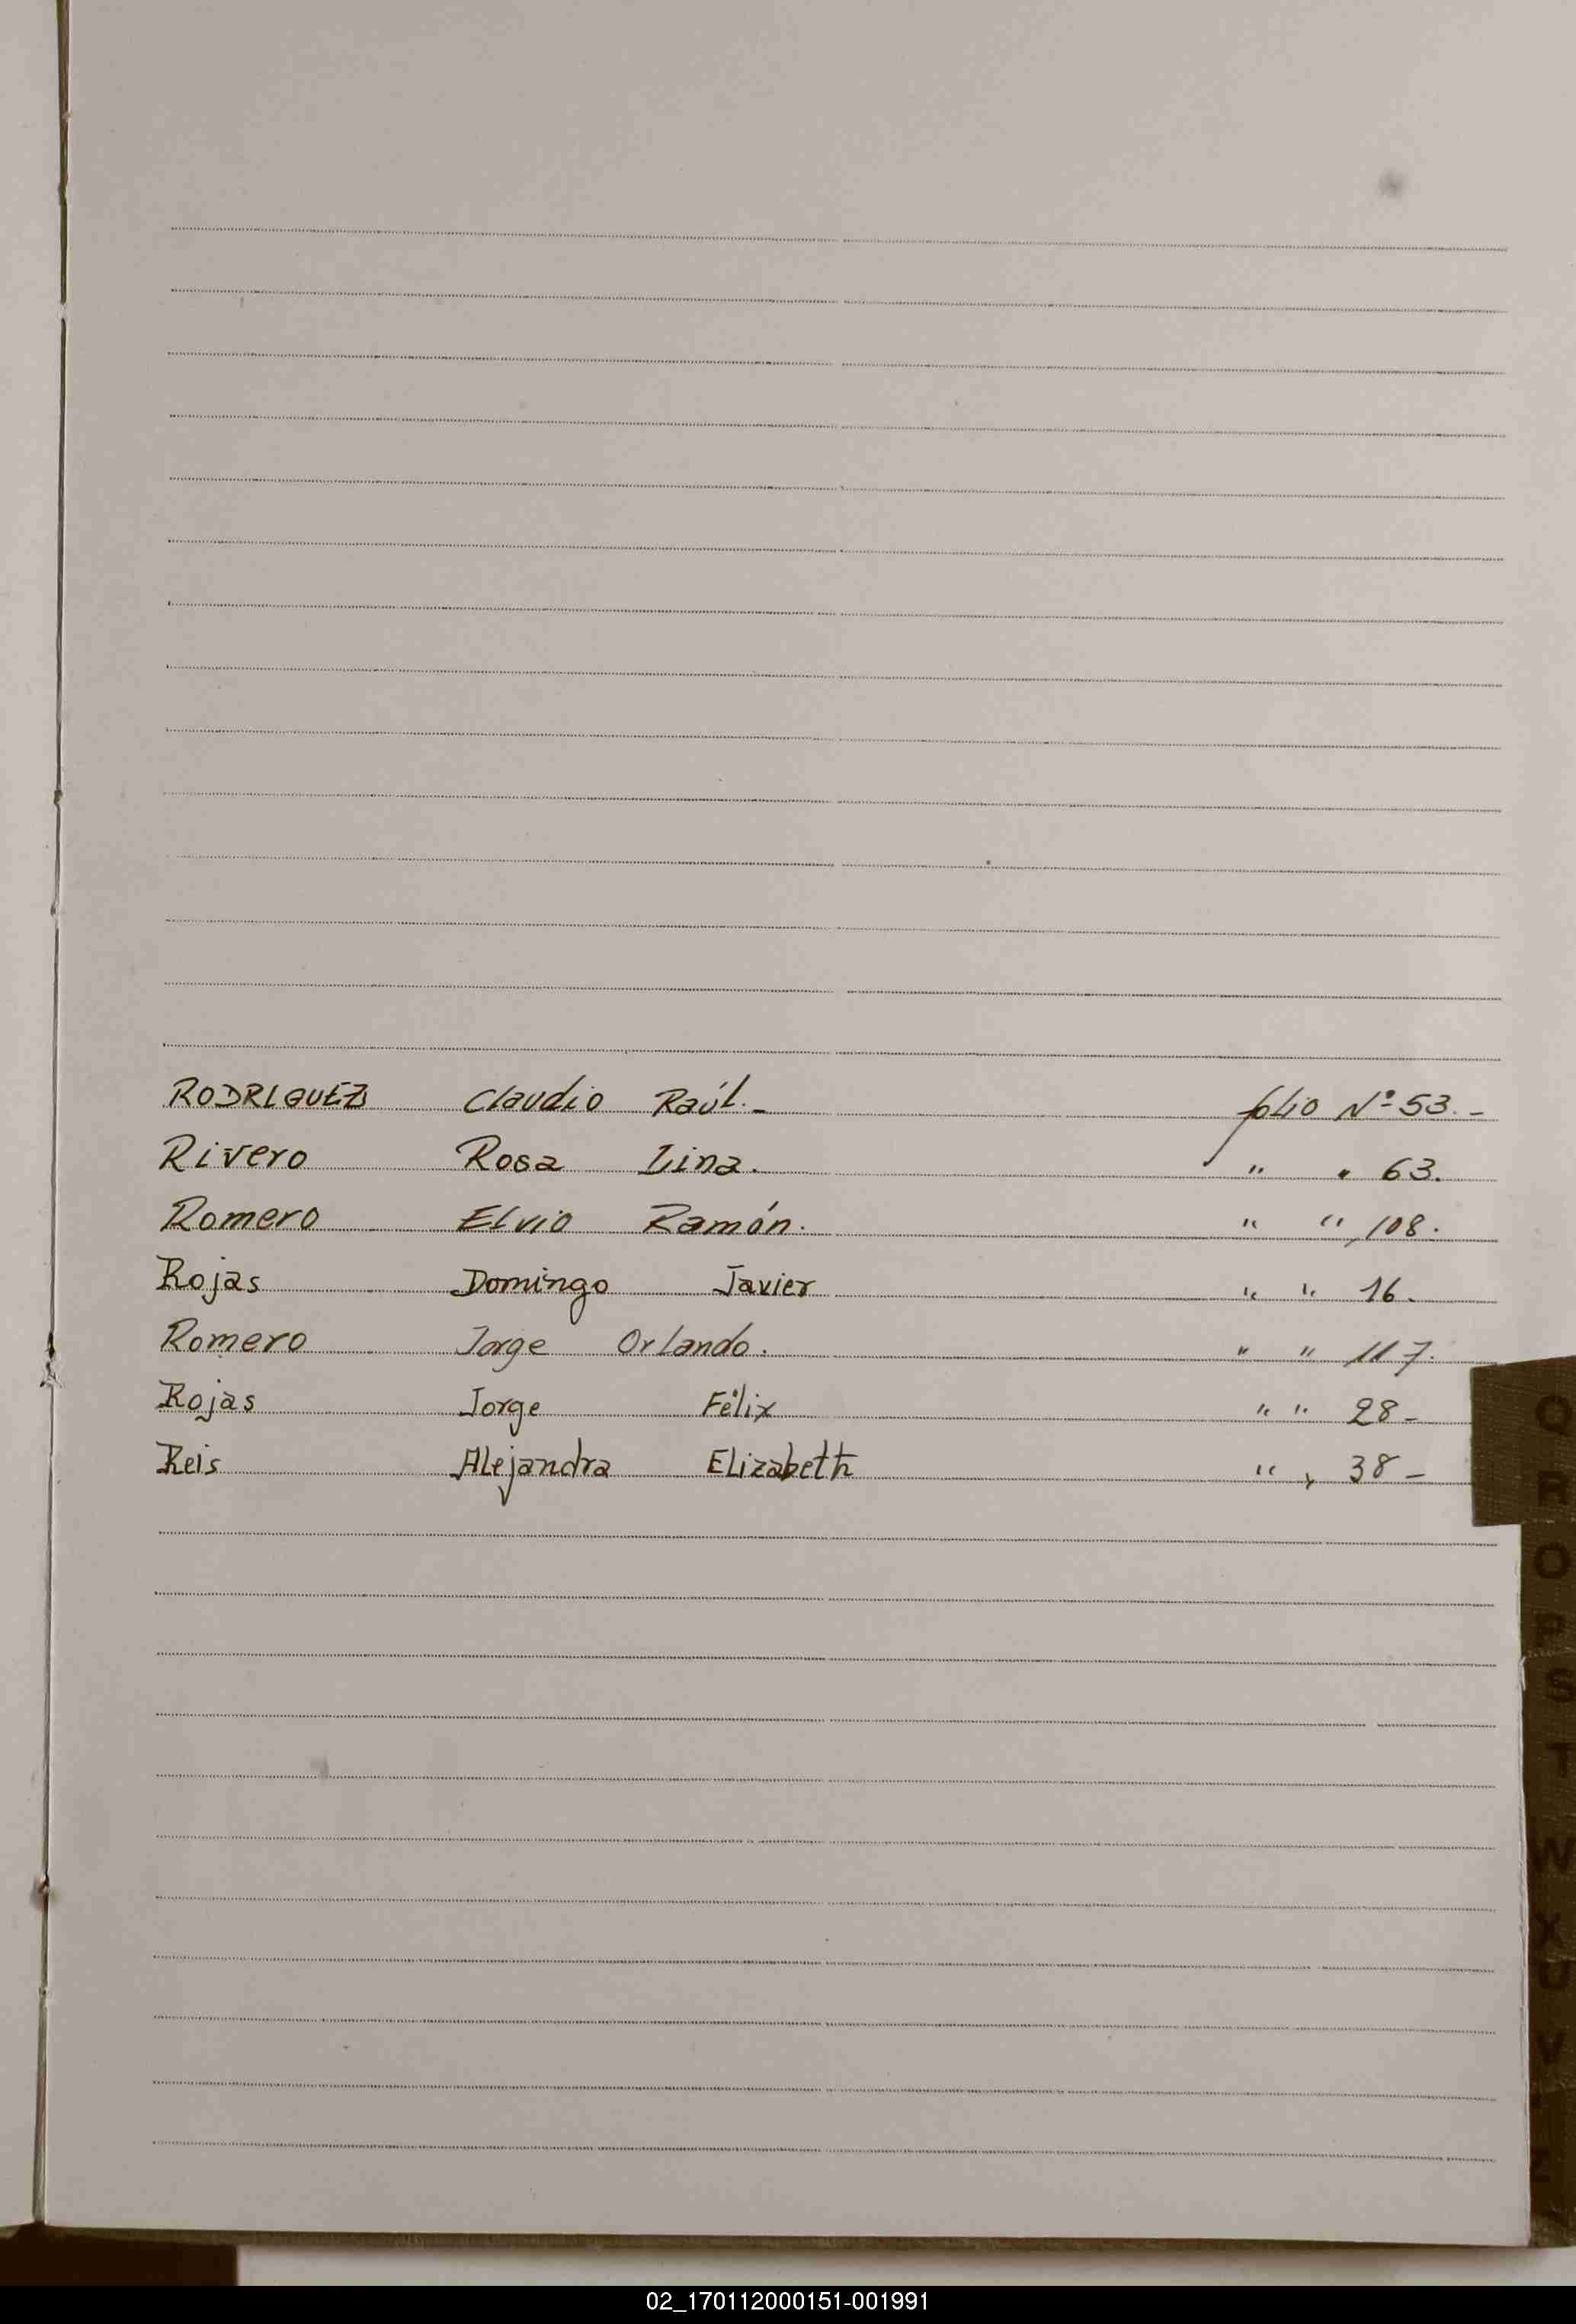 RODRIGUEZ Claudio Raúl.- folio Nº 53.-
Rivero Rosa Lina. " " 63.
Romero Elvio Ramón. " " 108.
Rojas Domingo Javier " " 16.
Romero Jorge Orlando. " " 117.
Rojas Jorge Félix " " 28-
Reis Alejandra Elizabeth " " 38-
Q
R
O
P
S
T
W
X
U
V
Z
02_170112000151-001991